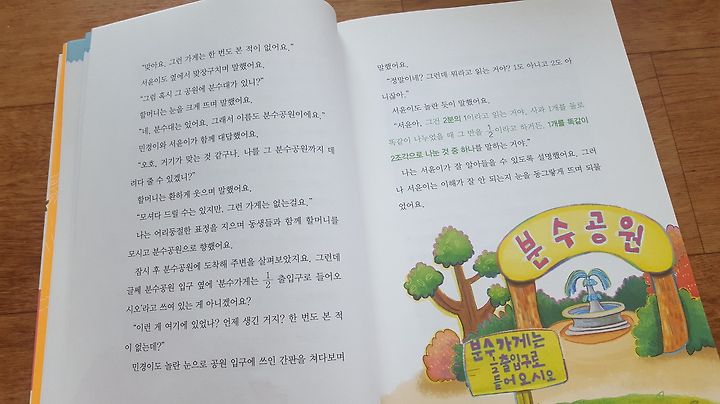 "맞아요. 그런 가게는 한 번도 본 적이 없어요."
서윤이도 옆에서 맞장구치며 말했어요.
"그럼 혹시 그 공원에 분수대가 있니?"
할머니는 눈을 크게 뜨며 말했어요.
"네, 분수대는 있어요. 그래서 이름도 분수공원이에요."
민경이와 서윤이가 함께 대답했어요.
"오호, 거기가 맞는 것 같구나. 나를 그 분수공원까지 데
려다 줄 수 있겠니?"
할머니는 환하게 웃으며 말했어요.
"모셔다 드릴 수는 있지만, 그런 가게는 없는걸요."
나는 어리둥절한 표정을 지으며 동생들과 함께 할머니를
모시고 분수공원으로 향했어요.
잠시 후 분수공원에 도착해 주변을 살펴보았지요. 그런데
글쎄 분수공원 입구 옆에 '분수가게는 1/2 출입구로 들어오
시오'라고 쓰여 있는 게 아니겠어요?
"이런 게 여기에 있었나? 언제 생긴 거지? 한 번도 본 적
이 없는데?"
민경이도 놀란 눈으로 공원 입구에 쓰인 간판을 쳐다보며
말했어요.
"정말이네? 그런데 뭐라고 읽는 거야? 1도 아니고 2도 아
니잖아."
서윤이도 놀란 듯이 말했어요.
"서윤아, 그건 2분의 1이라고 읽는 거야. 사과 1개를 둘로
똑같이 나누었을 때 그 반을 1/2이라고 하거든. 1개를 똑같이
2조각으로 나눈 것 중 하나를 말하는 거야."
나는 서윤이가 잘 알아들을 수 있도록 설명했어요. 그러
나 서윤이는 이해가 잘 안 되는지 눈을 동그랗게 뜨며 되물
었어요.
분수공원
분수가게는
1/2 출입구로
들어오시오